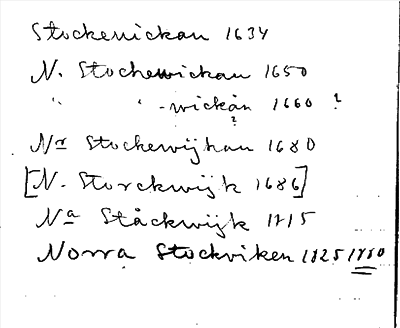 Stockenickan 1634
N. Stockewickan 1650
" " -wickån 1660 ?
?
Nr Stockewijkan 1680
[N. Storckwijk 1686]
Na Ståckwijk 1715
Norra Stockviken 1825 1880